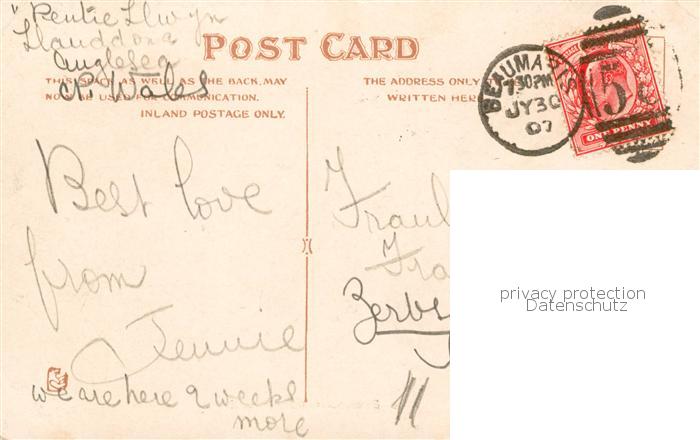 " Pentie Llwyn
Llanddona
Anglesea
N. Wales
POST CARD
THIS SPACE AS WELL AS THE BACK, MAY
NOW BE USED FOR COMMUNICATION.
INLAND POSTAGE ONLY.
THE ADDRESS ONLY TO
WRITTEN HER
BEAUMARIS
7.30PM
JY 30
07
ONE PENNY
Best love
from
Jennie
we are here 2 weeks
more
Fraul
Fra
Zerbs
privacy protection
Datenschutz